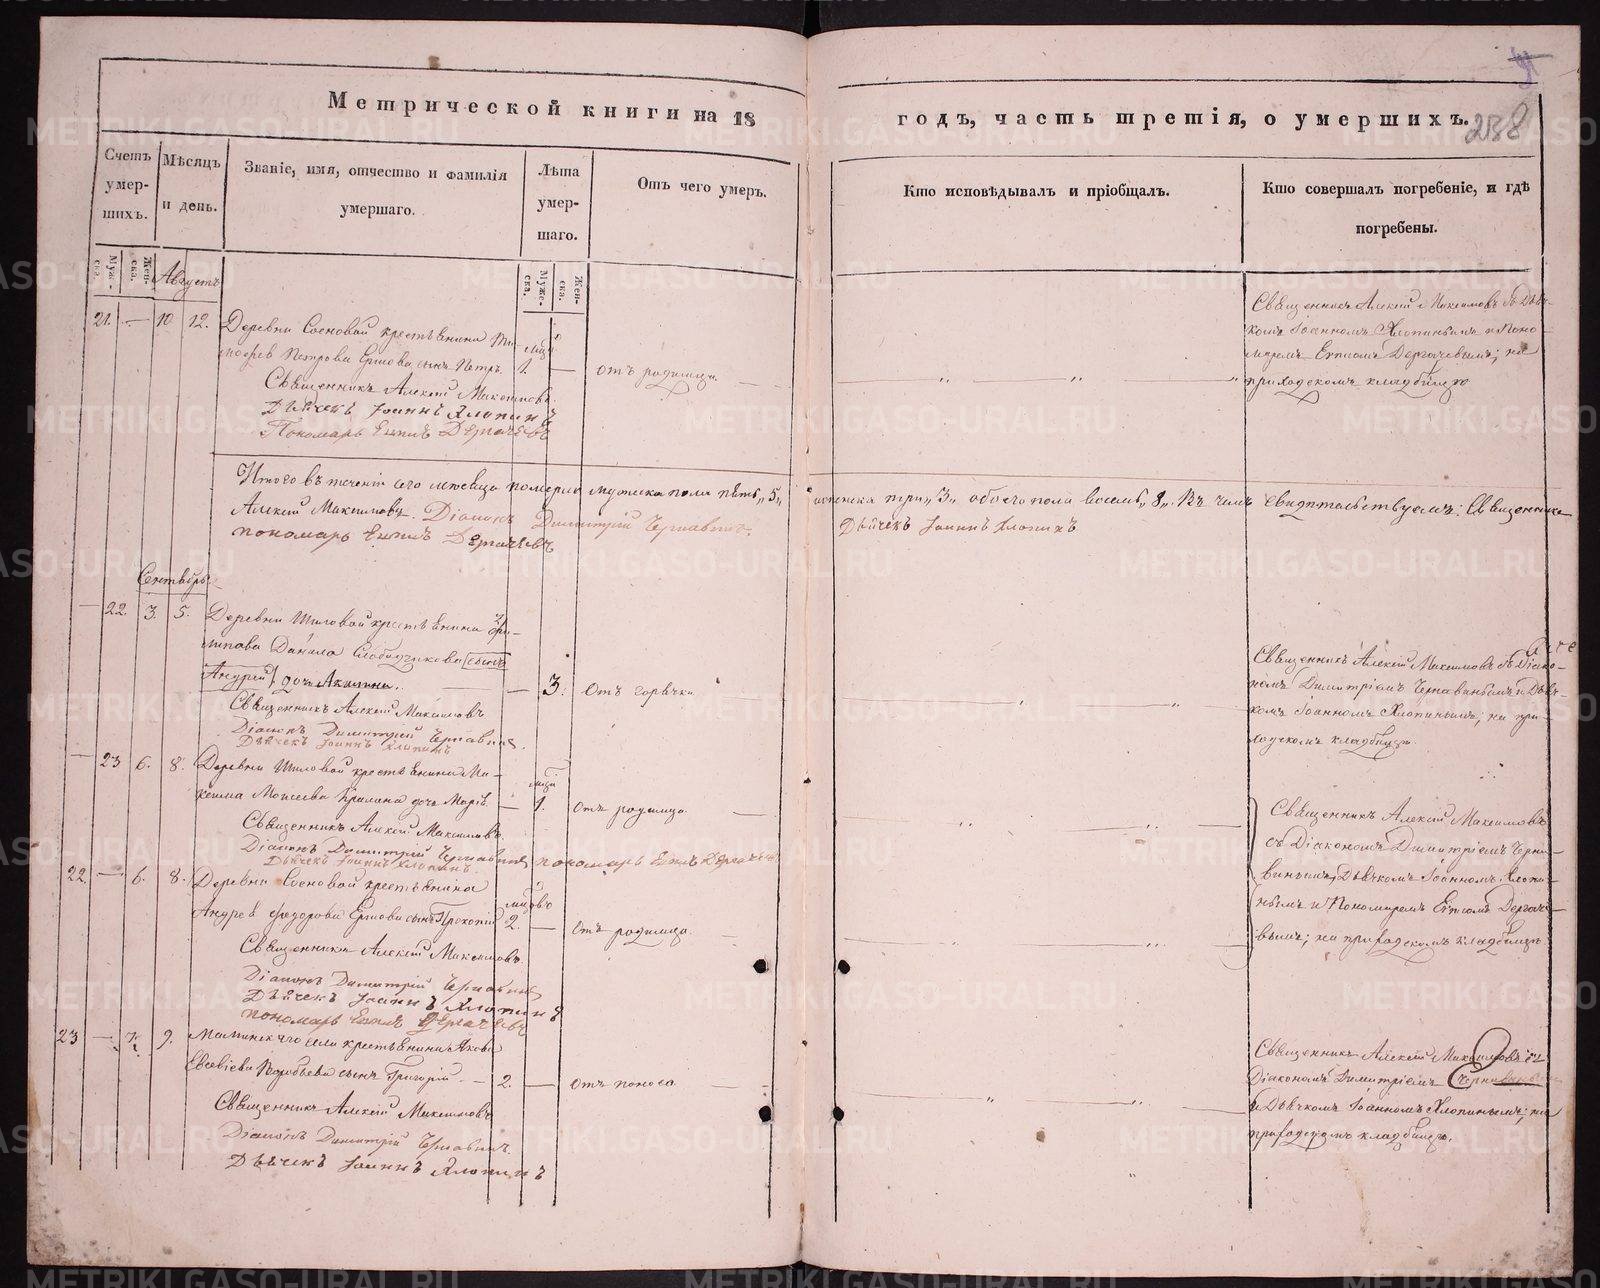 Метрической книги на 18 годъ, часть третія, о умершихъ.
238
Счетъ умершихъ.
Мѣсяцъ и день.
Званіе, имя, отчество и фамилія умершаго.
Лѣта умершаго.
Отъ чего умеръ.
Кто исповѣдывалъ и пріобщалъ.
Кто совершалъ погребеніе, и гдѣ погребены.
Августъ
21. — 10 12. Деревни Сосновой крестьянина Ти-
мофея Петрова Ершова сынъ Петръ. 1. — отъ родимца.
Священникъ Алексій Максимовъ
Дьячекъ Іоаннъ Хлопинъ
Пономарь Дергачевъ
Священникъ Алексій Максимовъ съ Дьяч-
комъ Іоанномъ Хлопинымъ и Поно-
маремъ Дергачевымъ; на
приходскомъ кладбищѣ
Итого въ теченіи сего мѣсяца померло мужеска пола пять „5„ женска три „3„ обоего пола восемь „8„. Въ чемъ свидѣтельствуемъ: Священникъ
Алексій Максимовъ. Діаконъ Димитрій Чернавинъ. Дьячекъ Іоаннъ Хлопинъ
пономарь Дергачевъ
Сентябрь
— 22. 3. 5. Деревни Шиловой крестьянина
Данила Слободчикова сынъ
Андрей доч Акилина. — 3. Отъ горячки
Священникъ Алексій Максимовъ
Діаконъ Димитрій Чернавинъ.
Дьячекъ Іоаннъ Хлопинъ
Священникъ Алексій Максимовъ съ Діако-
номъ Димитріемъ Чернавинымъ и Дьяч-
комъ Іоанномъ Хлопинымъ; на при-
ходскомъ кладбищѣ.
— 23 6. 8. Деревни Шиловой крестьянина Ма-
ксима Моисеева доч Марія — 1. Отъ родимца.
Священникъ Алексій Максимовъ.
Діаконъ Димитрій Чернавинъ пономарь Дергачевъ
Дьячекъ Іоаннъ Хлопинъ.
Священникъ Алексій Максимовъ
съ Діакономъ Димитріемъ Черна-
винымъ, Дьячкомъ Іоанномъ Хлопи-
нымъ и Пономаремъ Дергаче-
вымъ; на приходскомъ кладбищѣ
22. — 6. 8. Деревни Сосновой крестьянина
Андрея Федорова Ершова сынъ Прокопій 2. — Отъ родимца.
Священникъ Алексій Максимовъ
Діаконъ Димитрій Чернавинъ
Дьячекъ Іоаннъ Хлопинъ
пономарь Дергачевъ
23 — 7. 9. Маминскаго села крестьянина Якова
Евсевіева Воробьева сынъ Григорій. — 2. — Отъ поноса
Священникъ Алексій Максимовъ
Діаконъ Димитрій Чернавинъ.
Дьячекъ Іоаннъ Хлопинъ
Священникъ Алексій Максимовъ съ
Діакономъ Димитріемъ Чернавинымъ
и Дьячкомъ Іоанномъ Хлопинымъ; на
приходскомъ кладбищѣ.
METRIKI.GASO-URAL.RU